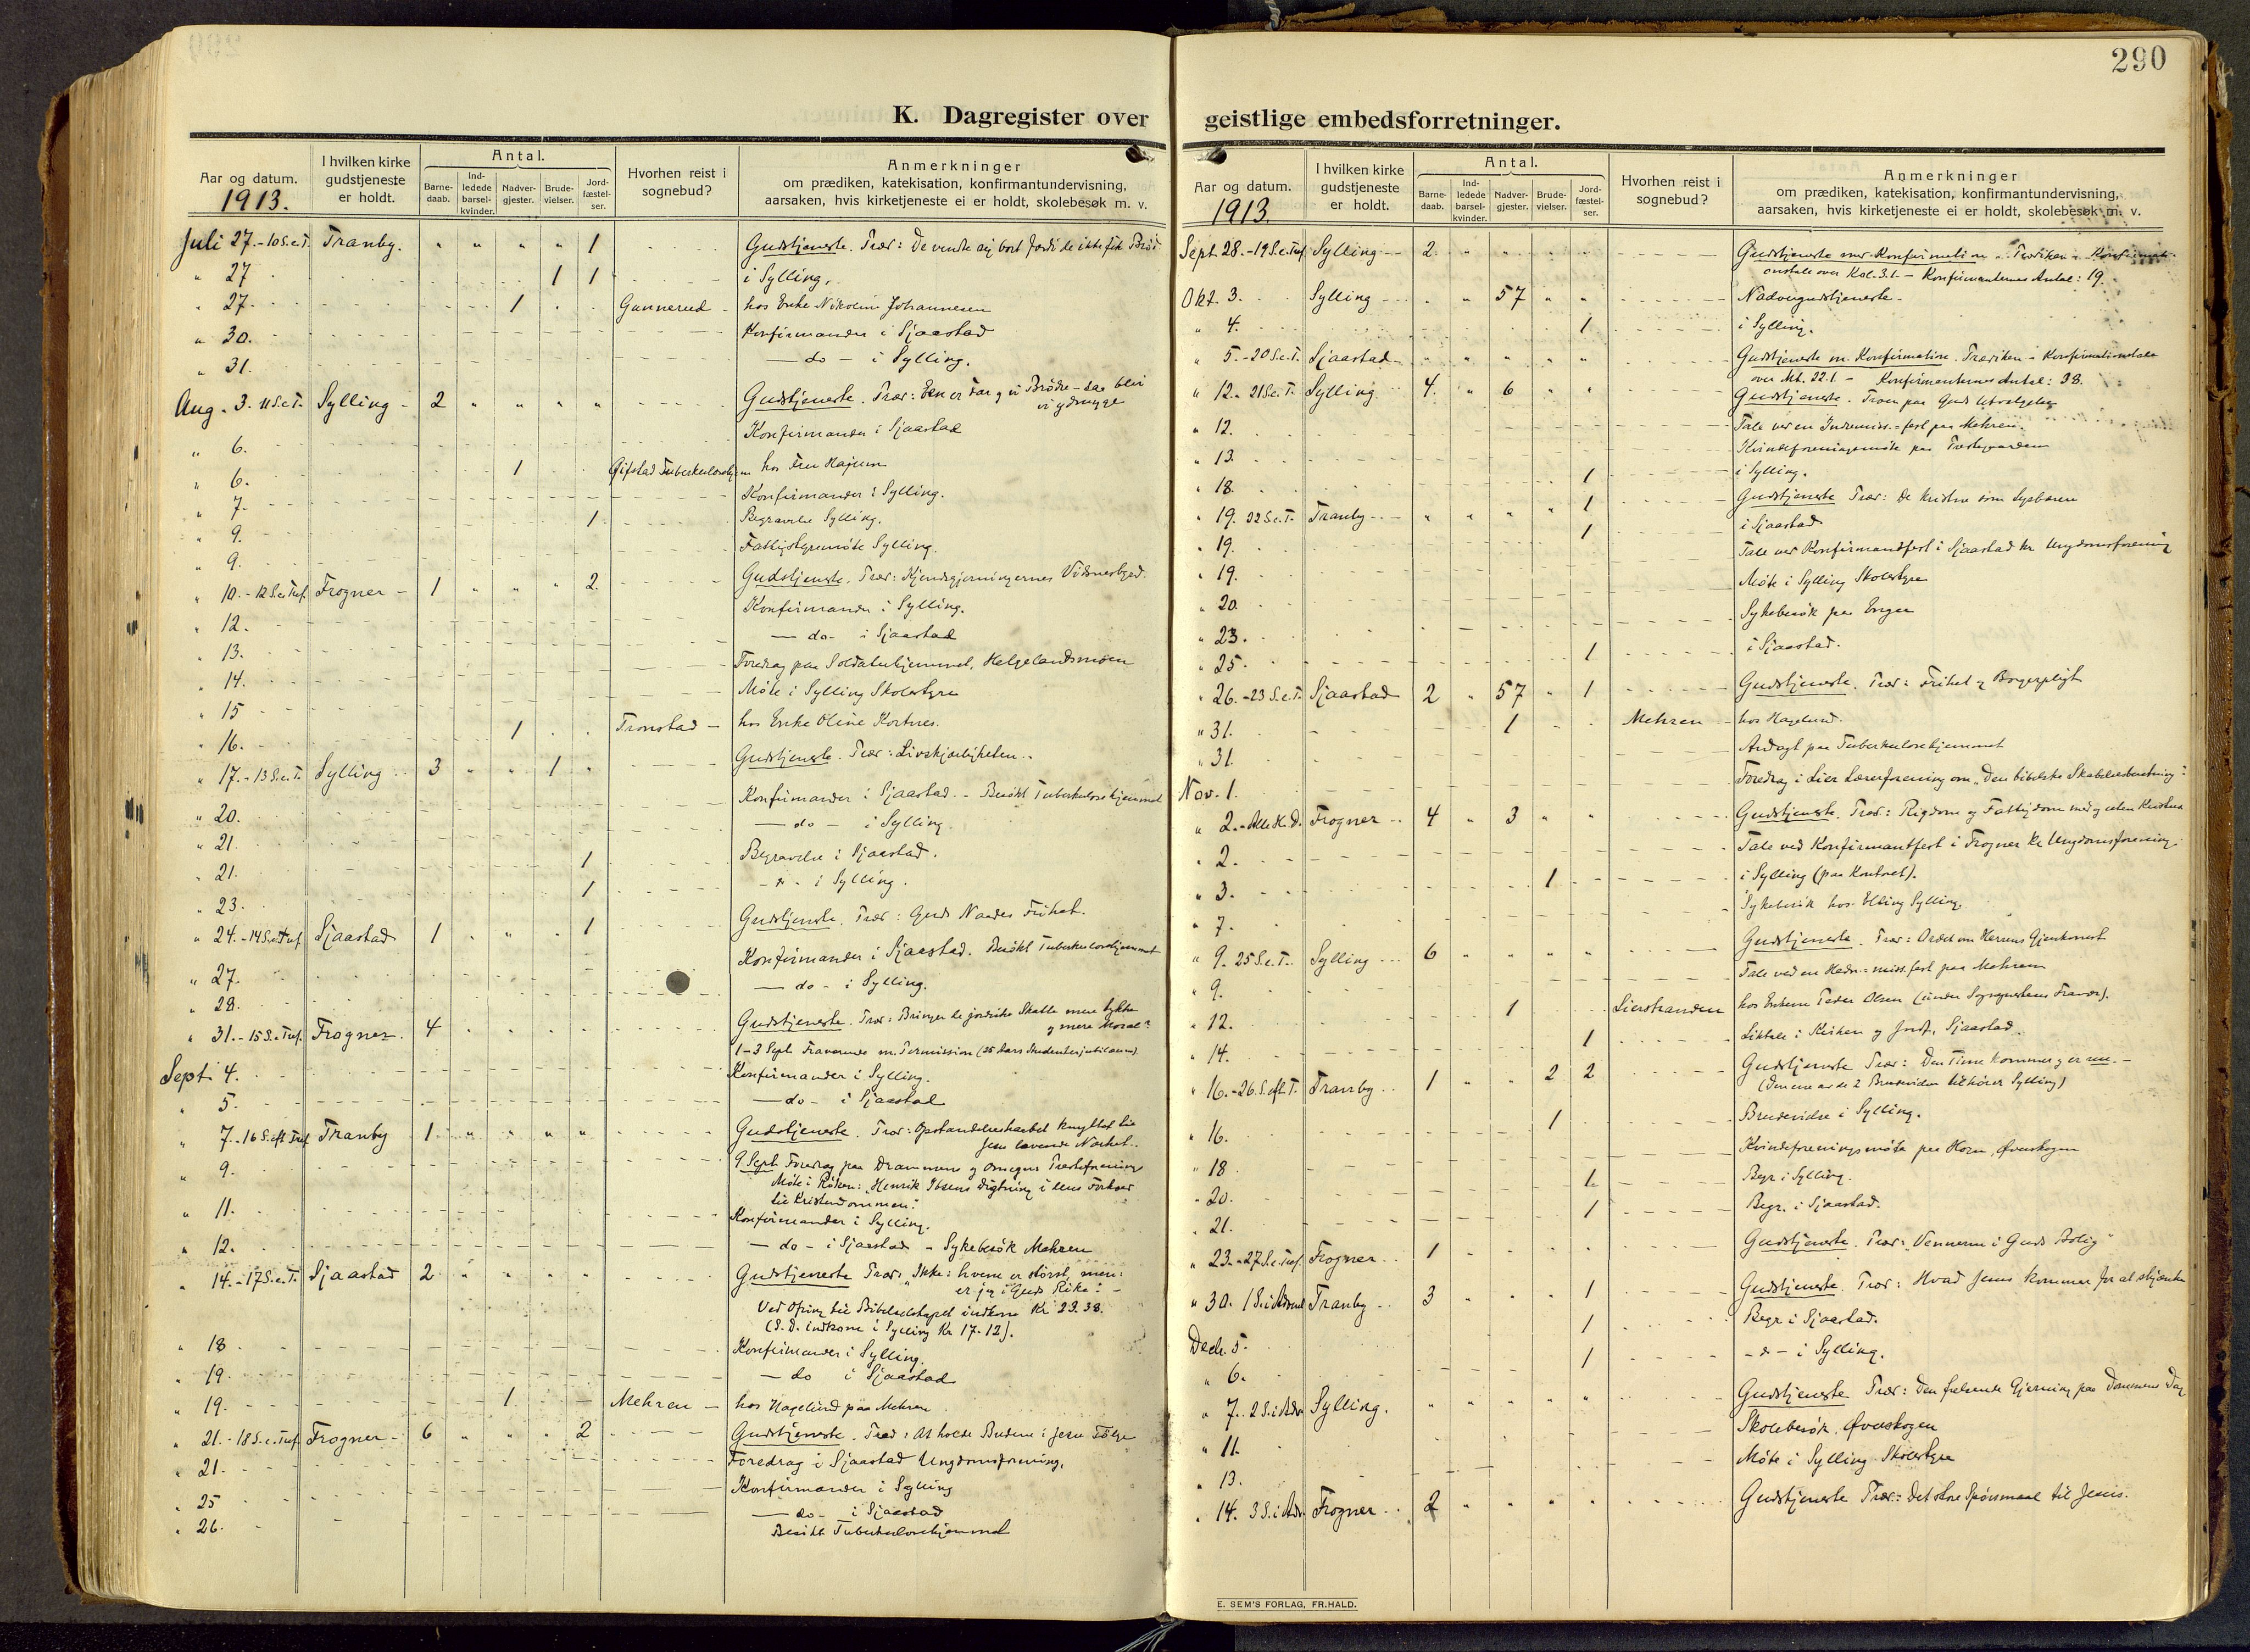 290
K. Dagregister over geistlige embedsforretninger.
Aar og datum. 1913.
I hvilken kirke gudstjeneste er holdt.
Antal.
Barne-daab. Ind-ledede barsel-kvinder. Nadver-gjester. Brude-vielser. Jord-fæstel-ser.
Hvorhen reist i sognebud?
Anmerkninger
om prædiken, katekisation, konfirmantundervisning,
aarsaken, hvis kirketjeneste ei er holdt, skolebesøk m. v.
Juli 27. - 10 S.e.T. Tranby. " " " " 1 Gudstjeneste. Præd: De vendte sig bort fordi de ikke fik Brød
" 27 1 1 i Sylling.
" 27. 1 Gunnerud - hos Enke Nikoline Johannesen
" 30. Konfirmander i Sjaastad
" 31. - do - i Sylling.
Aug. 3. 11 S.e.T. Sylling - 2 " " " " Gudstjeneste. Præd: Een er Far og vi Brødre - da blir
vi ydmyge
" 6. Konfirmander i Sjaastad
" 6. 1 Gifstad Tuberkulosehjem hos Fru
" 7. Konfirmander i Sylling.
" 9. 1 Begravelse Sylling.
" 9. Fattigstyremöte Sylling.
" 10. - 12 S.e.Tref. Frogner - 1 " " " 2. Gudstjeneste. Præd: Kjendsgjerningernes Vidnesbyrd.
" 12. Konfirmander i Sylling.
" 13. - do - i Sjaastad
" 14. Foredrag paa Soldaterhjemmet, Helgelandsmoen
" 15 Möte i Sylling Skolestyre
" 16. 1 Tronstad - hos Enke Oline Kortnes.
" 17. - 13 S.e.T. Sylling 3 " " 1 " Gudstjeneste. Præd: Livskjærligheten.
" 20. Konfirmander i Sjaastad. - Besökt Tuberkulosehjemmet
" 21. - do - i Sylling
" 21. 1 Begravelse i Sjaastad.
" 23. 1 - do - i Sylling.
" 24. - 14 S.e.Tref. Sjaastad 1 " " " 1 Gudstjeneste. Præd: Guds Naades Frihet.
" 27. Konfirmander i Sjaastad. Besökt Tuberkulosehjemmet
" 28. - do - i Sylling.
" 31. - 15 S.e.Tref. Frogner. 4 " " " " Gudstjeneste. Præd: Bringer de jordiske Skatte mere Lykke
og mere Moral?
1-3 Sept. Fraværende m. Permission (25 Aars Studenterjubilæum).
Sept. 4. Konfirmander i Sylling.
" 5. - do - i Sjaastad
" 7. - 16 S. eft Tref Tranby 1 " " " " Gudstjeneste. Præd: Opstandelseshaabet knyttet til
Jesu levende Nærhet.
" 9. 9 Sept. Foredrag paa Drammens og Omegns Præsteforenings
Möte i Röken: "Henrik Ibsens Digtning i dens Forhold
til Kristendommen".
" 11. Konfirmander i Sylling.
" 12. - do - i Sjaastad - Sykebesök Mehren
" 14. - 17 S.e.T. Sjaastad 2 " " " " Gudstjeneste Præd: "Ikke: hvem er störst, men:
er jeg i Guds Rike". -
Ved Ofring til Bibelselskapet indkom Kr 23.38.
(S. D. indkom i Sylling Kr 17.12).
" 18. Konfirmander i Sylling.
" 19. - do i Sjaastad
" 19. 1 Mehren - hos Hagelund paa Mehren
" 21. - 18 S.e.Tref. Frogner - 6 " " " 2 Gudstjeneste. Præd: At holde Budene i Jesu Fölge
" 21. Foredrag i Sjaastad Ungdomsforening.
" 25 Konfirmander i Sylling
" 26. - do - i Sjaastad
Besökt Tuberkulosehjemmet
Aar og datum. 1913
I hvilken kirke gudstjeneste er holdt.
Antal.
Barne-daab. Ind-ledede barsel-kvinder. Nadver-gjester. Brude-vielser. Jord-fæstel-ser.
Hvorhen reist i sognebud?
Anmerkninger
om prædiken, katekisation, konfirmantundervisning,
aarsaken, hvis kirketjeneste ei er holdt, skolebesøk m. v.
Sept. 28. - 19 S.e.Tref Sylling - 2. " " " " Gudstjeneste med Konfirmation. - Prædiken = Konfirmati-
onstale over Kol. 3.1. - Konfirmanternes Antal: 19.
Okt. 3. Sylling - " " 57 " " Nadvergudstjeneste.
" 4. 1 i Sylling.
" 5. - 20 S.e.T. Sjaastad - " " " " " Gudstjeneste m. Konfirmation. Prædiken = Konfirmationstale
over Mt. 22.1. - Konfirmanternes Antal: 38.
" 12. - 21 S.e.T. Sylling 4. " 6 " " Gudstjeneste. Troen paa Guds Utvælgelse
" 12. Tale ved en Indremiss.-fest paa Mehren.
" 13. Kvindeforeningsmöte paa Præstegaarden
" 18. 1 i Sylling.
" 19. 22 S.e.T. Tranby - " " " " 1 Gudstjeneste Præd: De kristne som Lysbærere
" 19. 1 i Sjaastad
" 19. Tale ved Konfirmandfest i Sjaastad kr. Ungdomsforening
" 20. Möte i Sylling Skolestyre
" 23. Sykebesök paa Enger
" 25. 1 i Sjaastad.
" 26. - 23 S.e.T. Sjaastad 2 " 57 " 1 Gudstjeneste. Præd: Frihet og Borgerpligt
" 31. 1 Mehren - hos Hagelund.
" 31. Andagt paa Tuberkulosehjemmet
Nov. 1. Foredrag i Lier Lærerforening om "Den bibelske Skabelsesberetning".
" 2. - Alle H. D. Frogner - 4 " 3 " " Gudstjeneste. Præd.: Rigdom og Fattigdom med og uten Kristus
" 2. Tale ved Konfirmantfest i Frogner kr. Ungdomsforening.
" 3. 1 i Sylling (paa Kontoret).
" 7. Sykebesök hos Elling Sylling
" 9. 25 S.e.T. Sylling 6 " " " " Gudstjeneste. Præd: Ordet om Herrens Gjenkomst
" 9. Tale ved en Hedn.-miss. fest paa Mehren
" 12. 1 Lierstranden hos Enkem. Peder Olsen (under Sogneprestens Fravær).
" 14. 1 Liktale i Kirken og Jordf. Sjaastad.
" 16. - 26. S. eft. T. Tranby 1 " " 2 2 Gudstjeneste Præd: Den Time kommer og er nu. -
(Den ene av de 2 Brudevielser tilhörer Sylling)
" 16. 1 Brudevielse i Sylling.
" 18 Kvindeforeningsmöte paa Horn, Øverskogen
" 20. 1 Begr. i Sylling.
" 21. 1 Begr. i Sjaastad.
" 23. - 27 S.e.Tref. Frogner 1 " " " " Gudstjeneste. Præd: "Vennerne i Guds Bolig"
" 30. 1 S. i Advent Tranby 3 " " " 1 Gudstjeneste. Præd: Hvad Jesus kommer for at skjænke
Decb. 5. 1 Begr. i Sjaastad.
" 6. 1 - do - i Sylling.
" 7. 2 S. i Adv. Sylling. " " " " " Gudstjeneste Præd: Den frelsende Gjerning paa Dommens Dag
" 11. Skolebesök Øverskogen
" 13. Möte i Sylling Skolestyre
" 14. 3 S. i Adv. Frogner 2 " " " " Gudstjeneste Præd: Det store Spörsmaal til Jesus.
E. SEM'S FORLAG, FR.HALD.